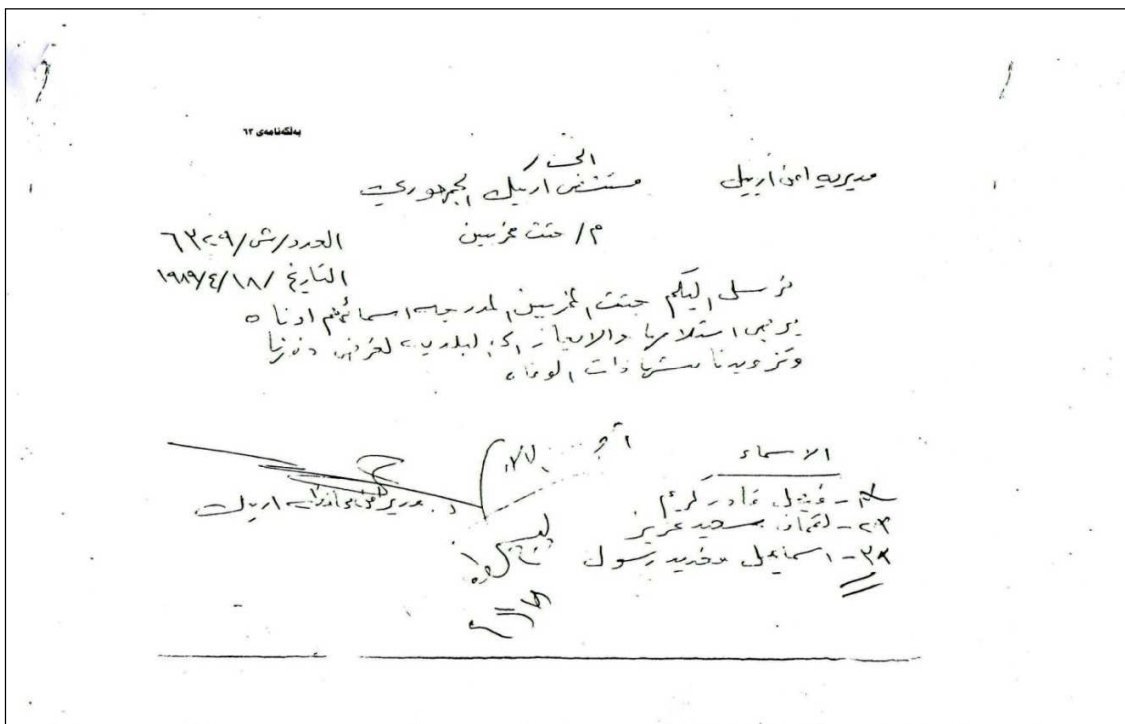 بەلگەنامەی ٦٣
مديرية امن اربيل
الى /
مستشفى اربيل الجمهوري
م/ جثث مخربين
العدد/ش/٦٣٢٩
التاريخ /١٩٨٩/٤/١٨
نرسل اليكم جثث المخربين المدرجة اسمائهم ادناه
يرجى استلامها والايعاز الى البلدية لغرض دفنها
وتزويدنا بشهادات الوفاة
الاسماء
١- فيصل قادر كريم
٢- لقمان سعيد عزيز
٣- اسماعيل فريد رسول
مدير امن محافظة اربيل